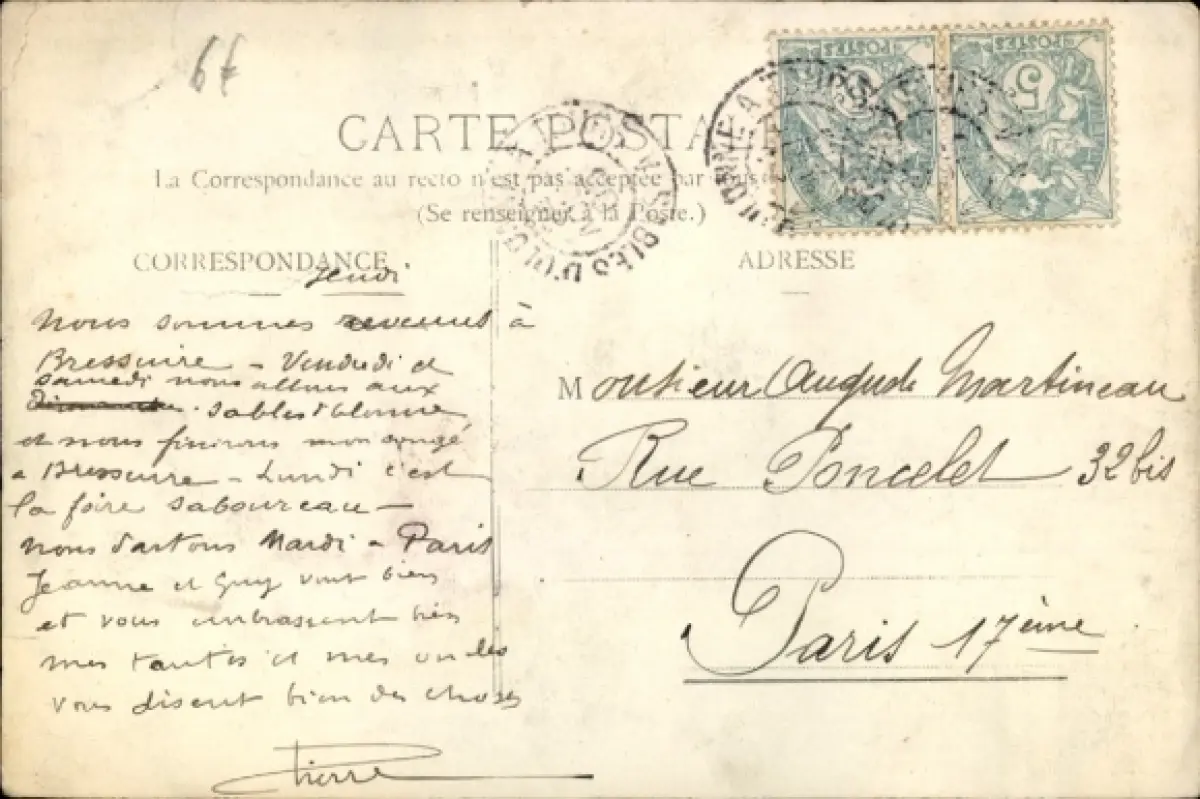 6f
POSTES POSTES
5c
CARTE POSTALE
La Correspondance au recto n'est pas acceptée par tous
(Se renseigner à la Poste.)
SABLES D'OLONNE
CORRESPONDANCE
ADRESSE
Jeudi
Nous sommes revenus à
Bressuire - Vendredi et
samedi nous allons aux
Sables d'Olonne
et nous finirons mon congé
a Bressuire - Lundi c'est
la foire Saboureau -
nous partons Mardi a Paris
Jeanne et Guy vont bien
et vous embrassent bien
mes tantes et mes oncles
vous disent bien des choses
Pierre
Monsieur Auguste Martineau
Rue Poncelet 32 bis
Paris 17ème